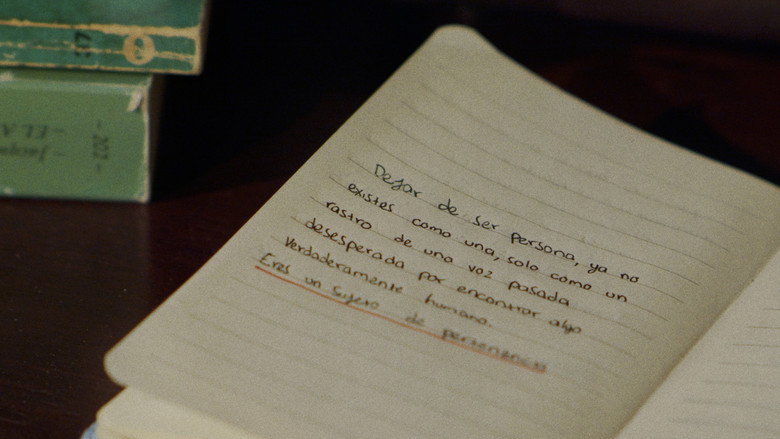 Dejar de ser persona, ya no
existes como una, solo como un
rastro de una voz pasada
desesperada por encontrar algo
verdaderamente humano.
Eres un sujeto de pertenencia
317
-202-
- EL A
Jacque